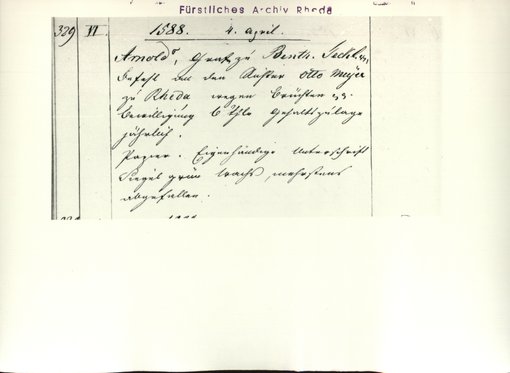 Fürstliches Archiv Rheda
329 VI 1588. 4. April.
Arnold, Graf zu Benth. Teckl.
Befehl an den Küster Otto Meyer
zu Rheda wegen Brüchten
Bewilligung 6 Thlr Gehaltszulage
jährlich.
Papier. Eigenhändige Unterschrift
Siegel grün Wachs, mehrstens
abgefallen.